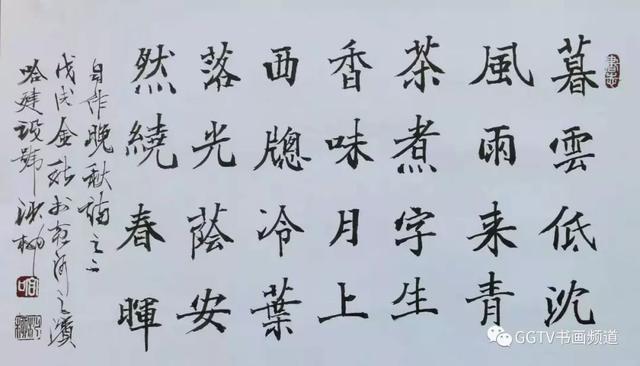 暮雲低沈
風雨来青
茶煮字生
香味月上
西牕冷葉
落光蔭安
然繞春暉
自作晚秋詩之二
戊戌金秋於松河之濱
哈建設
GGTV书画频道